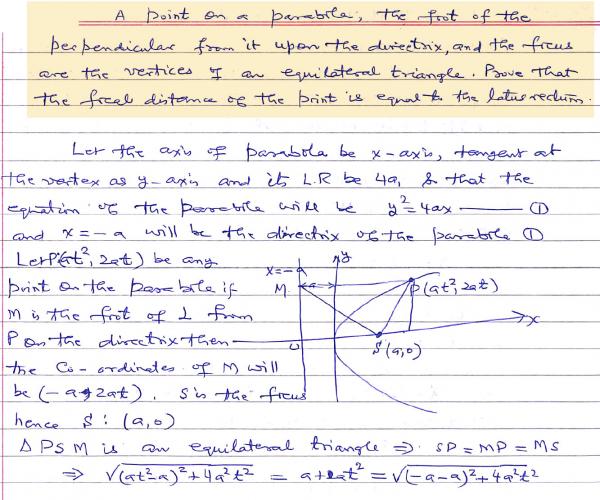 A point on a parabola, the foot of the
perpendicular from it upon the directrix, and the focus
are the vertices of an equilateral triangle. Prove that
the focal distance of the point is equal to the latus rectum.
Let the axis of parabola be x-axis, tangent at
the vertex as y-axis and its L.R be 4a, so that the
equation of the parabola will be y²=4ax —— ①
and x=-a will be the directrix of the parabola ①
Let P(at², 2at) be any
point on the parabola if
M is the foot of ⊥ from
P on the directrix then
the Co-ordinates of M will
be (-a, 2at). S is the focus
hence S : (a,0)
x=-a
y
M
P(at², 2at)
x
S(a,0)
Δ PSM is an equilateral triangle ⇒ SP = MP = MS
⇒ √(at²-a)²+4a²t² = a+at² = √(-a-a)²+4a²t²